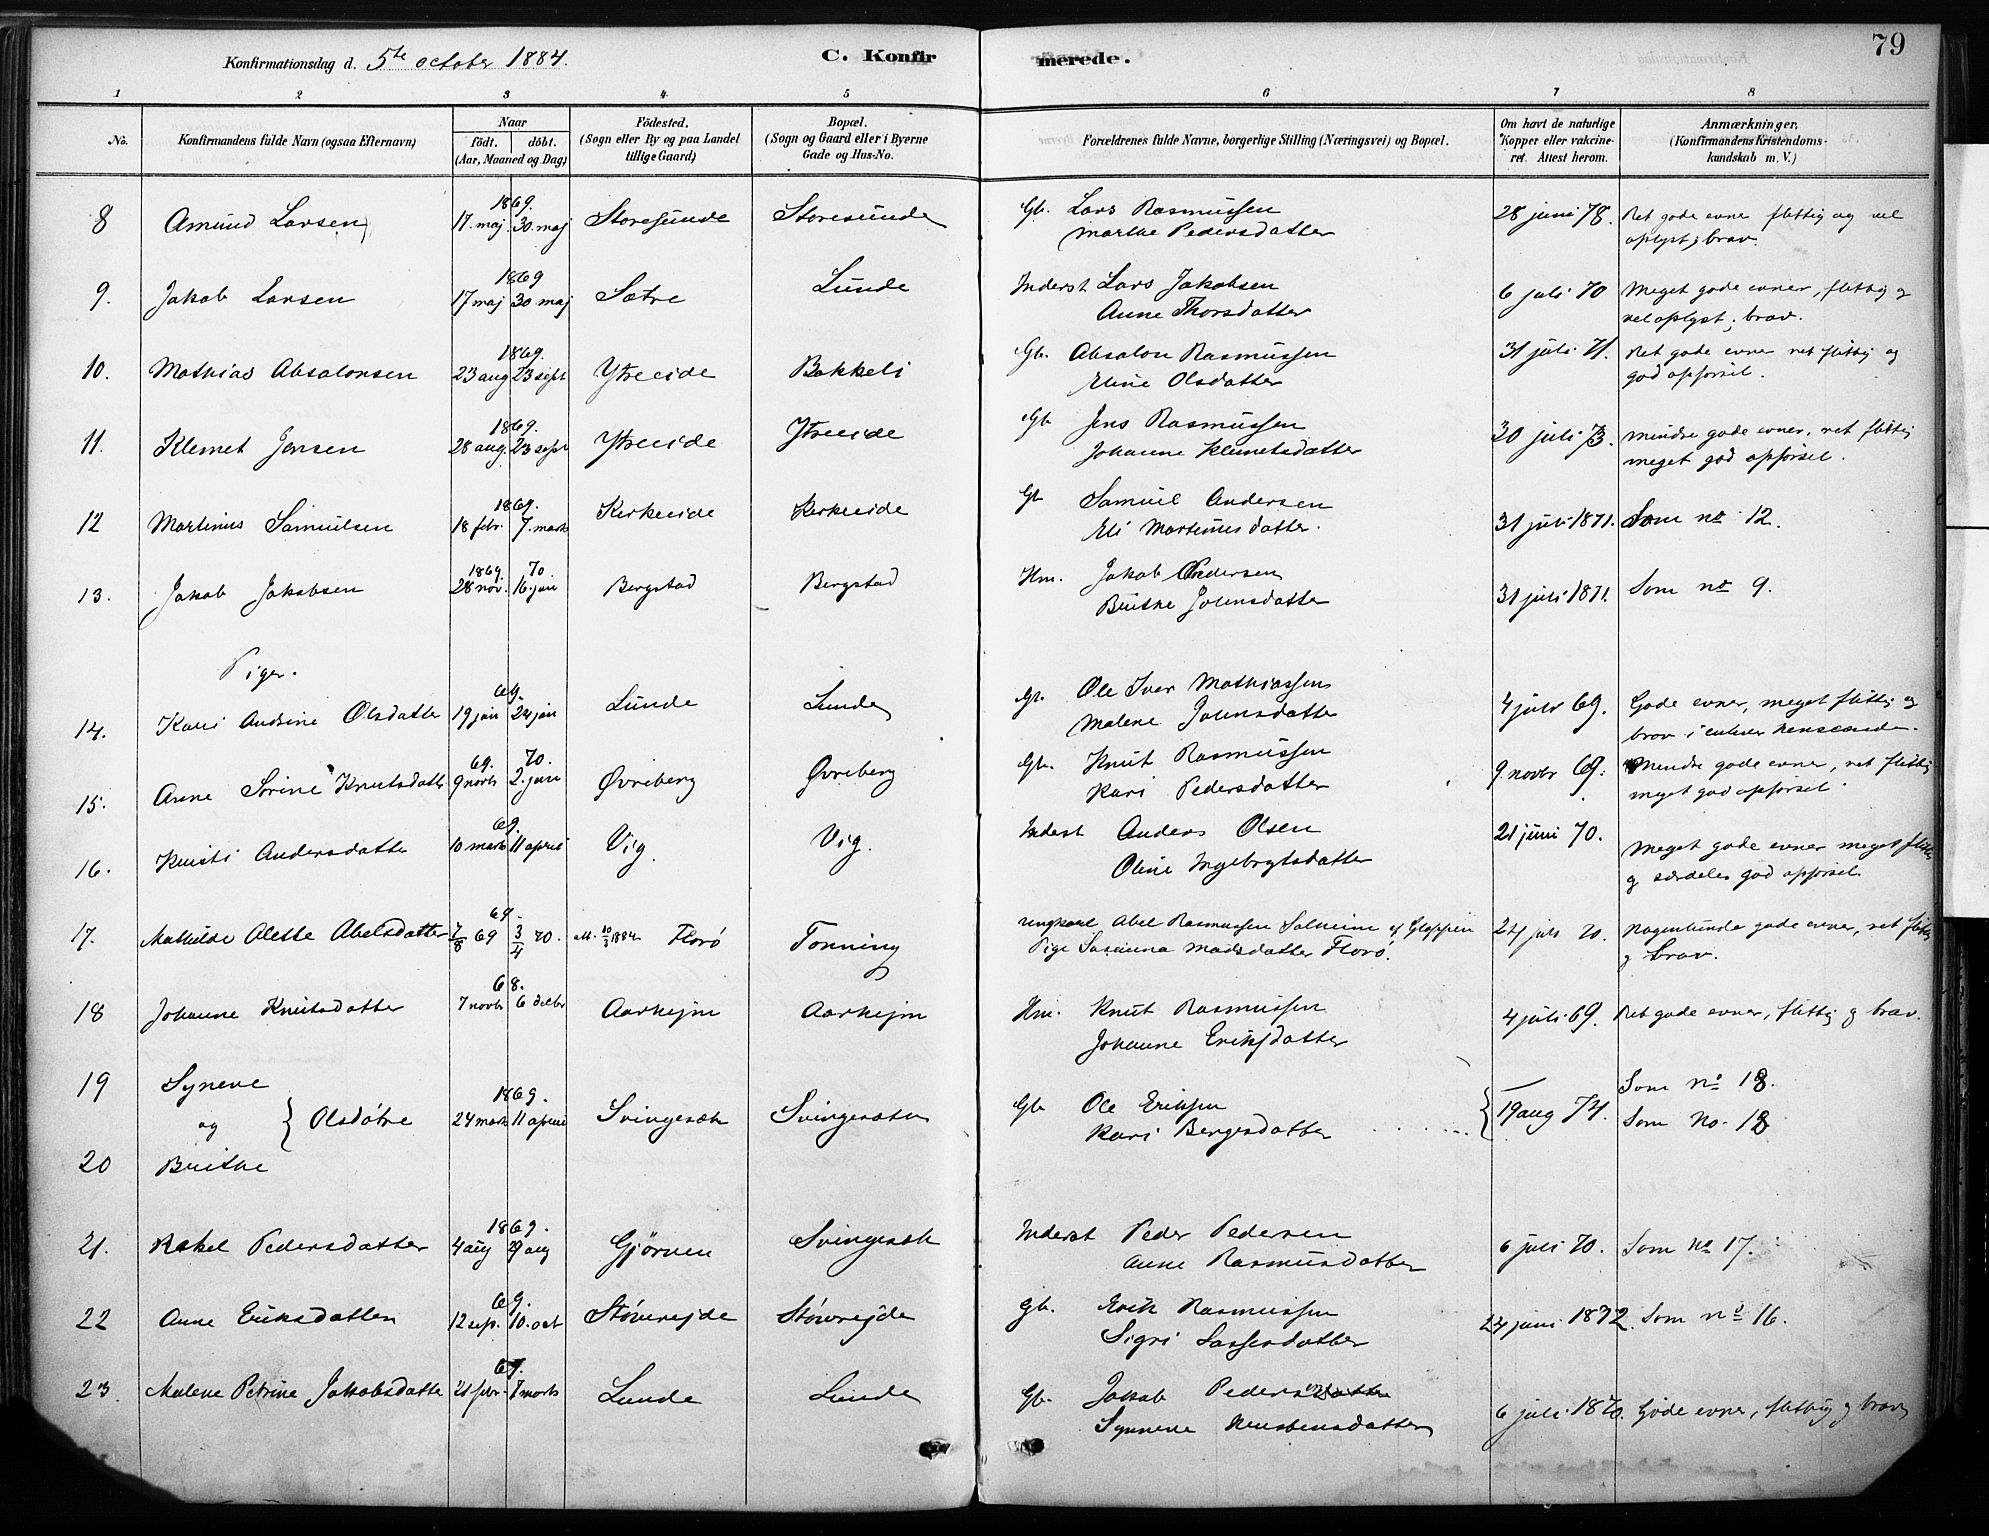 79
Konfirmationsdag d. 5te october 1884.
C. Konfirmerede.
1 2 3 4 5 6 7 8
No.
Konfirmandens fulde Navn (ogsaa Efternavn)
Naar
födt. döbt.
(Aar, Maaned og Dag)
Födested.
(Sogn eller By og paa Landet
tillige Gaard)
Bopæl.
(Sogn og Gaard eller i Byerne
Gade og Hus-No.
Forældrenes fulde Navne, borgerlige Stilling (Næringsvei) og Bopæl.
Om havt de naturlige
Kopper eller vakcine-
ret. Attest herom.
Anmærkninger.
(Konfirmandens Kristendoms-
kundskab m. V.)
1869.
8 Amund Larsen 17. maj. 30. maj Storesunde Storesunde Gb. Lars Rasmussen 28 juni 78. Ret gode evner flittig og vel
Marthe Pedersdatter oplyst; brav.
1869
9. Jakob Larsen 17 maj 30 maj Sætre Lunde Inderst Lars Jakobsen 6 juli 70 Meget gode evner, flittig og
Anne Thorsdatter vel oplyst; brav.
1869.
10. Mathias Absalonsen 23 aug 23 sept Ytreeide Bakkeli Gb. Absalon Rasmussen 31 juli 71. Ret gode evner ret flittig og
Eline Olsdatter god opførsel.
1869.
11. Klemet Jensen 28 aug. 23 sept Ytreeide Ytreeide Gb Jens Rasmussen 30 juli 73. Mindre gode evner, ret flittig
Johanne Klemetsdatter meget god opførsel.
1869.
12 Martinus Samuelsen 18 febr. 7. marts Kirkeeide Kirkeeide Gb Samuel Andersen 31 juli 1871. Som no 12.
Eli Martinusdatter.
1869. 70
13. Jakob Jakobsen 28 nov. 16. jan Bergstad Bergstad Hm. Jakob Pedersen 31 juli 1871. Som no 9.
Brithe Johnsdatter
Piger.
69.
14. Kari Andrine Olsdatter 19 jan 24 jan Lunde Lunde Gb. Ole Iver Mathiassen 4 juli 69. Gode evner, meget flittig og
Malene Johnsdatter brav i enhver henseende.
69. 70.
15. Anne Sørine Knutsdatter 9 novb 2. jan Øvreberg Øvreberg Gb. Knut Rasmussen 9. novbr 69. Mindre gode evner, ret flittig
Kari Pedersdatter meget god opførsel.
69.
16. Kristi Andersdatter 10 marts 11 april Vig. Vig. Inderst Anders Olsen 21 juni 70. Meget gode evner meget flittig
Oline Ingebrgtsdatter og særdeles god opførsel.
69.
17. Mathilde Olette Abelsdatter 7/8 69 3/4 70. Florø Tonning Ungkarl Abel Rasmussen Solheim af Gloppen 24 juli 70. Nogenlunde gode evner, ret flittig
Pige Susanna Madsdatter Florø. og brav.
68.
18 Johanne Knutsdatter 7 novbr 6 decbr Aarhejm Aarhejm Hm. Knut Rasmussen 4 juli 69. Ret gode evner, flittig og brav.
Johanne Eriksdatter
19 Syneve Som no 18.
1869.
og } Olsdøtre 24 marts 11 april Svingesæt Svingesæten Gb Ole Eriksen 19 aug 74. Som no. 18
Kari Børgesdatter
20 Brithe
1869.
21. Rakel Pedersdatter 4 aug 29 aug Gjørven Svingesæt Inderst Peder Pedersen 6 juli 70. Som no 17.
Anne Rasmusdatter
69.
22 Anne Eriksdatter 12 sep. 10. oct Støvrejde Støvrejde Gb. Erik Rasmussen 24 juni 1872. Som no 16.
Sigri Lassesdatter
69.
23. Malene Petrine Jakobsdatter 21 febr. 7 marts Lunde Lunde Gb. Jakob Pedersen 6 juli 1870. Gode evner, flittig og brav
Synneve